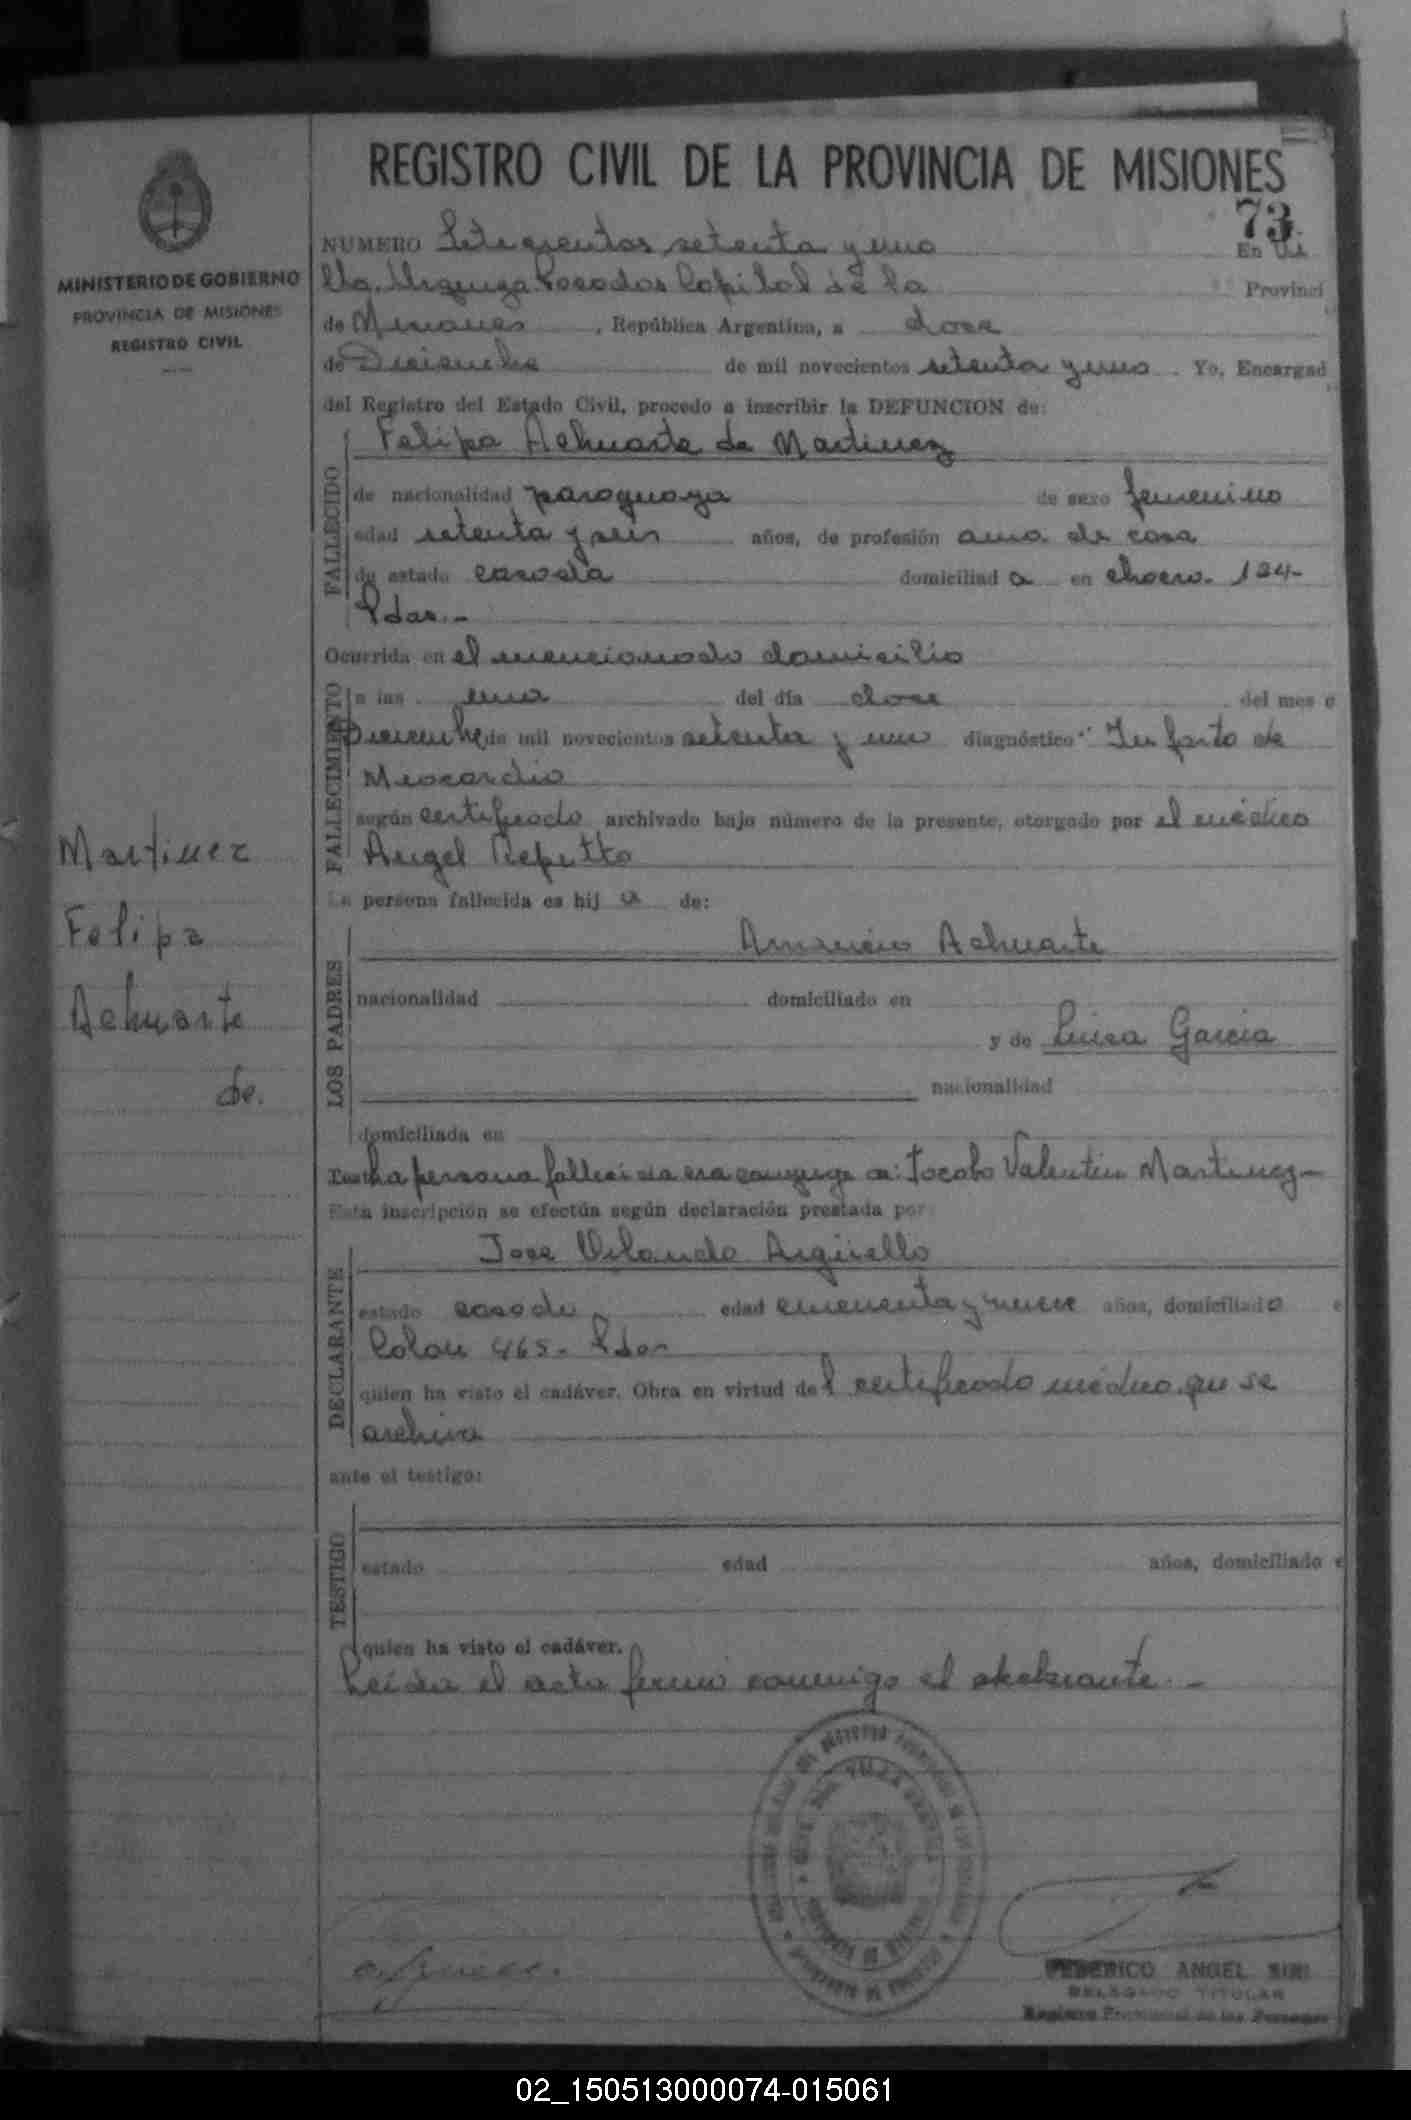 REGISTRO CIVIL DE LA PROVINCIA DE MISIONES
73
MINISTERIO DE GOBIERNO
PROVINCIA DE MISIONES
REGISTRO CIVIL
NUMERO Setecientos setenta y uno En Vi
lla Urquiza Posadas Capital de la Provinci
de Misiones, República Argentina, a doce
de Diciembre de mil novecientos setenta y uno. Yo, Encargad
del Registro del Estado Civil, procedo a inscribir la DEFUNCION de:
FALLECIDO
Felipa Achuarte de Martinez
de nacionalidad paraguaya de sexo femenino
edad setenta y seis años, de profesión ama de casa
de estado casada domiciliad a en chaco. 124-
Pdas.-
Ocurrida en el mencionado domicilio
FALLECIMIENTO
a las una del día doce del mes
Diciembre de mil novecientos setenta y uno diagnóstico Infarto de
Miocardio
según certificado archivado bajo número de la presente, otorgado por el médico
Angel Repetto
La persona fallecida es hij a de:
LOS PADRES
Achuarte
nacionalidad domiciliado en
y de Luisa Garcia
nacionalidad
domiciliada en
La persona fallecida era conyuge de: Jocobo Valentin Martinez-
Esta inscripción se efectúa según declaración prestada por
DECLARANTE
Jose Orlando Argüello
estado casado edad cincuenta y nueve años, domiciliado e
Colon 465- Pdas
quien ha visto el cadáver. Obra en virtud del certificado médico que se
archiva
ante el testigo:
TESTIGO
estado edad años, domiciliado e
quien ha visto el cadáver.
Leida el acta firmó conmigo el declarante.-
Martinez
Felipa
Achuarte
de.
FEDERICO ANGEL
DELEGADO TITULAR
Registro Provincial de las Personas
02_150513000074-015061